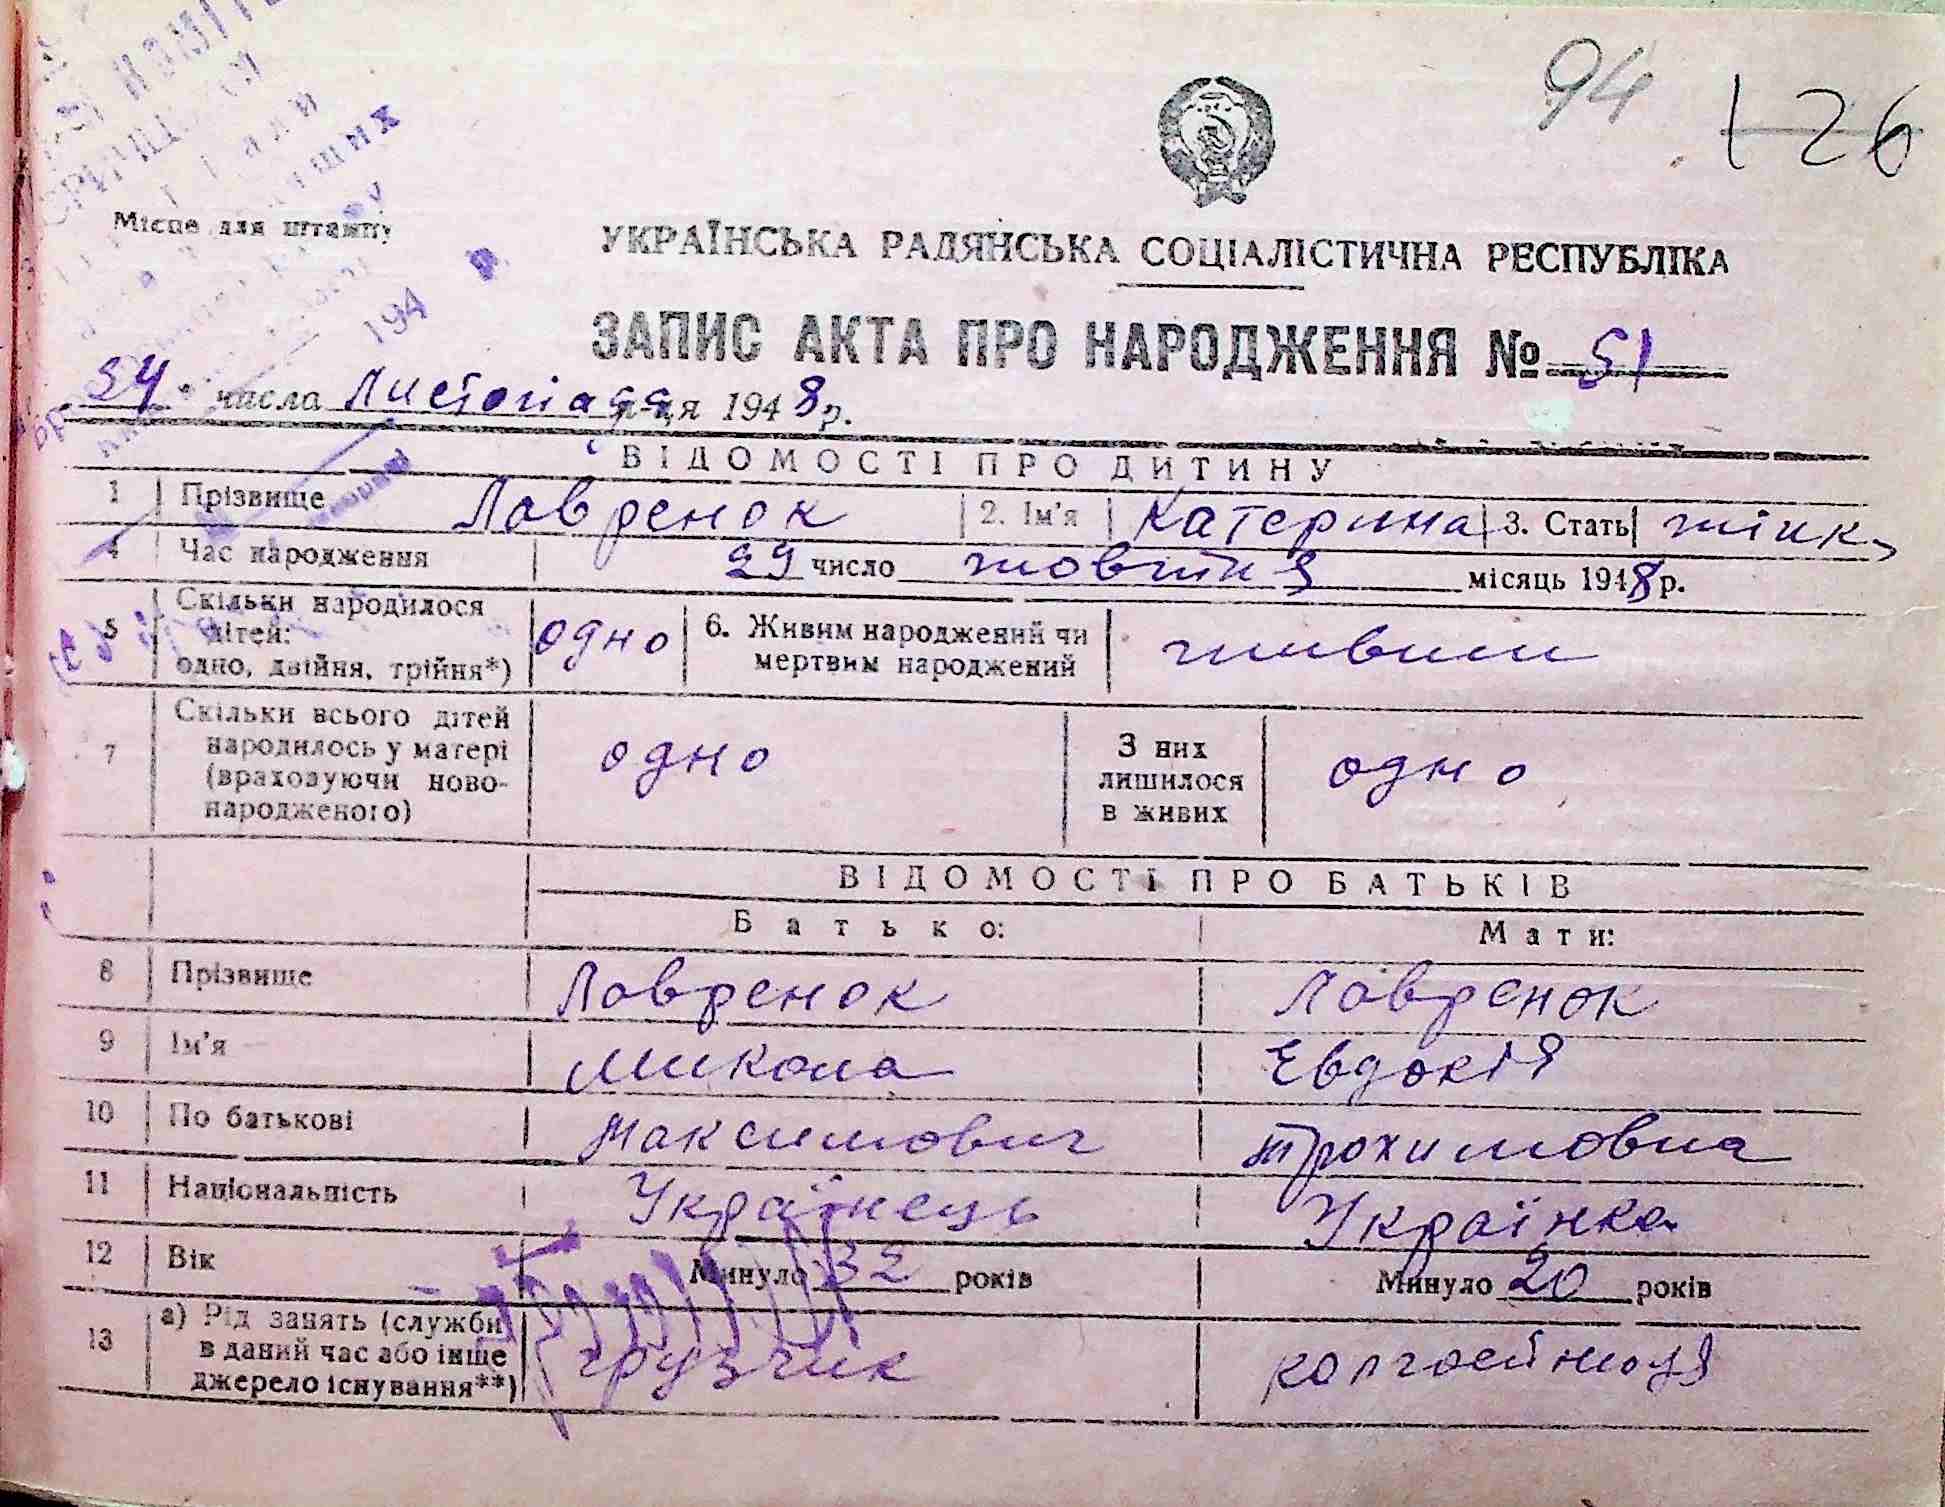 94 126
Місце для штампу
УКРАЇНСЬКА РАДЯНСЬКА СОЦІАЛІСТИЧНА РЕСПУБЛІКА
194 р.
ЗАПИС АКТА ПРО НАРОДЖЕННЯ № 51
числа Листопада м-ця 1948 р.
ВІДОМОСТІ ПРО ДИТИНУ
1 Прізвище Лавренок 2. Ім'я Катерина 3. Стать жінк.
4 Час народження 29 число жовтня місяць 1948 р.
5 Скільки народилося
дітей:
одно, двійня, трійня*) одно 6. Живим народжений чи
мертвим народжений живим
7 Скільки всього дітей
народилось у матері
(враховуючи ново-
народженого) одно З них
лишилося
в живих одно
ВІДОМОСТІ ПРО БАТЬКІВ
Батько: Мати:
8 Прізвище Лавренок Лавренок
9 Ім'я Микола Евдокія
10 По батькові Максимович Трохимовна
11 Національність Українець Українка
12 Вік Минуло 32 років Минуло 20 років
13 а) Рід занять (служби
в даний час або інше
джерело існування**) грузчик колгоспниця